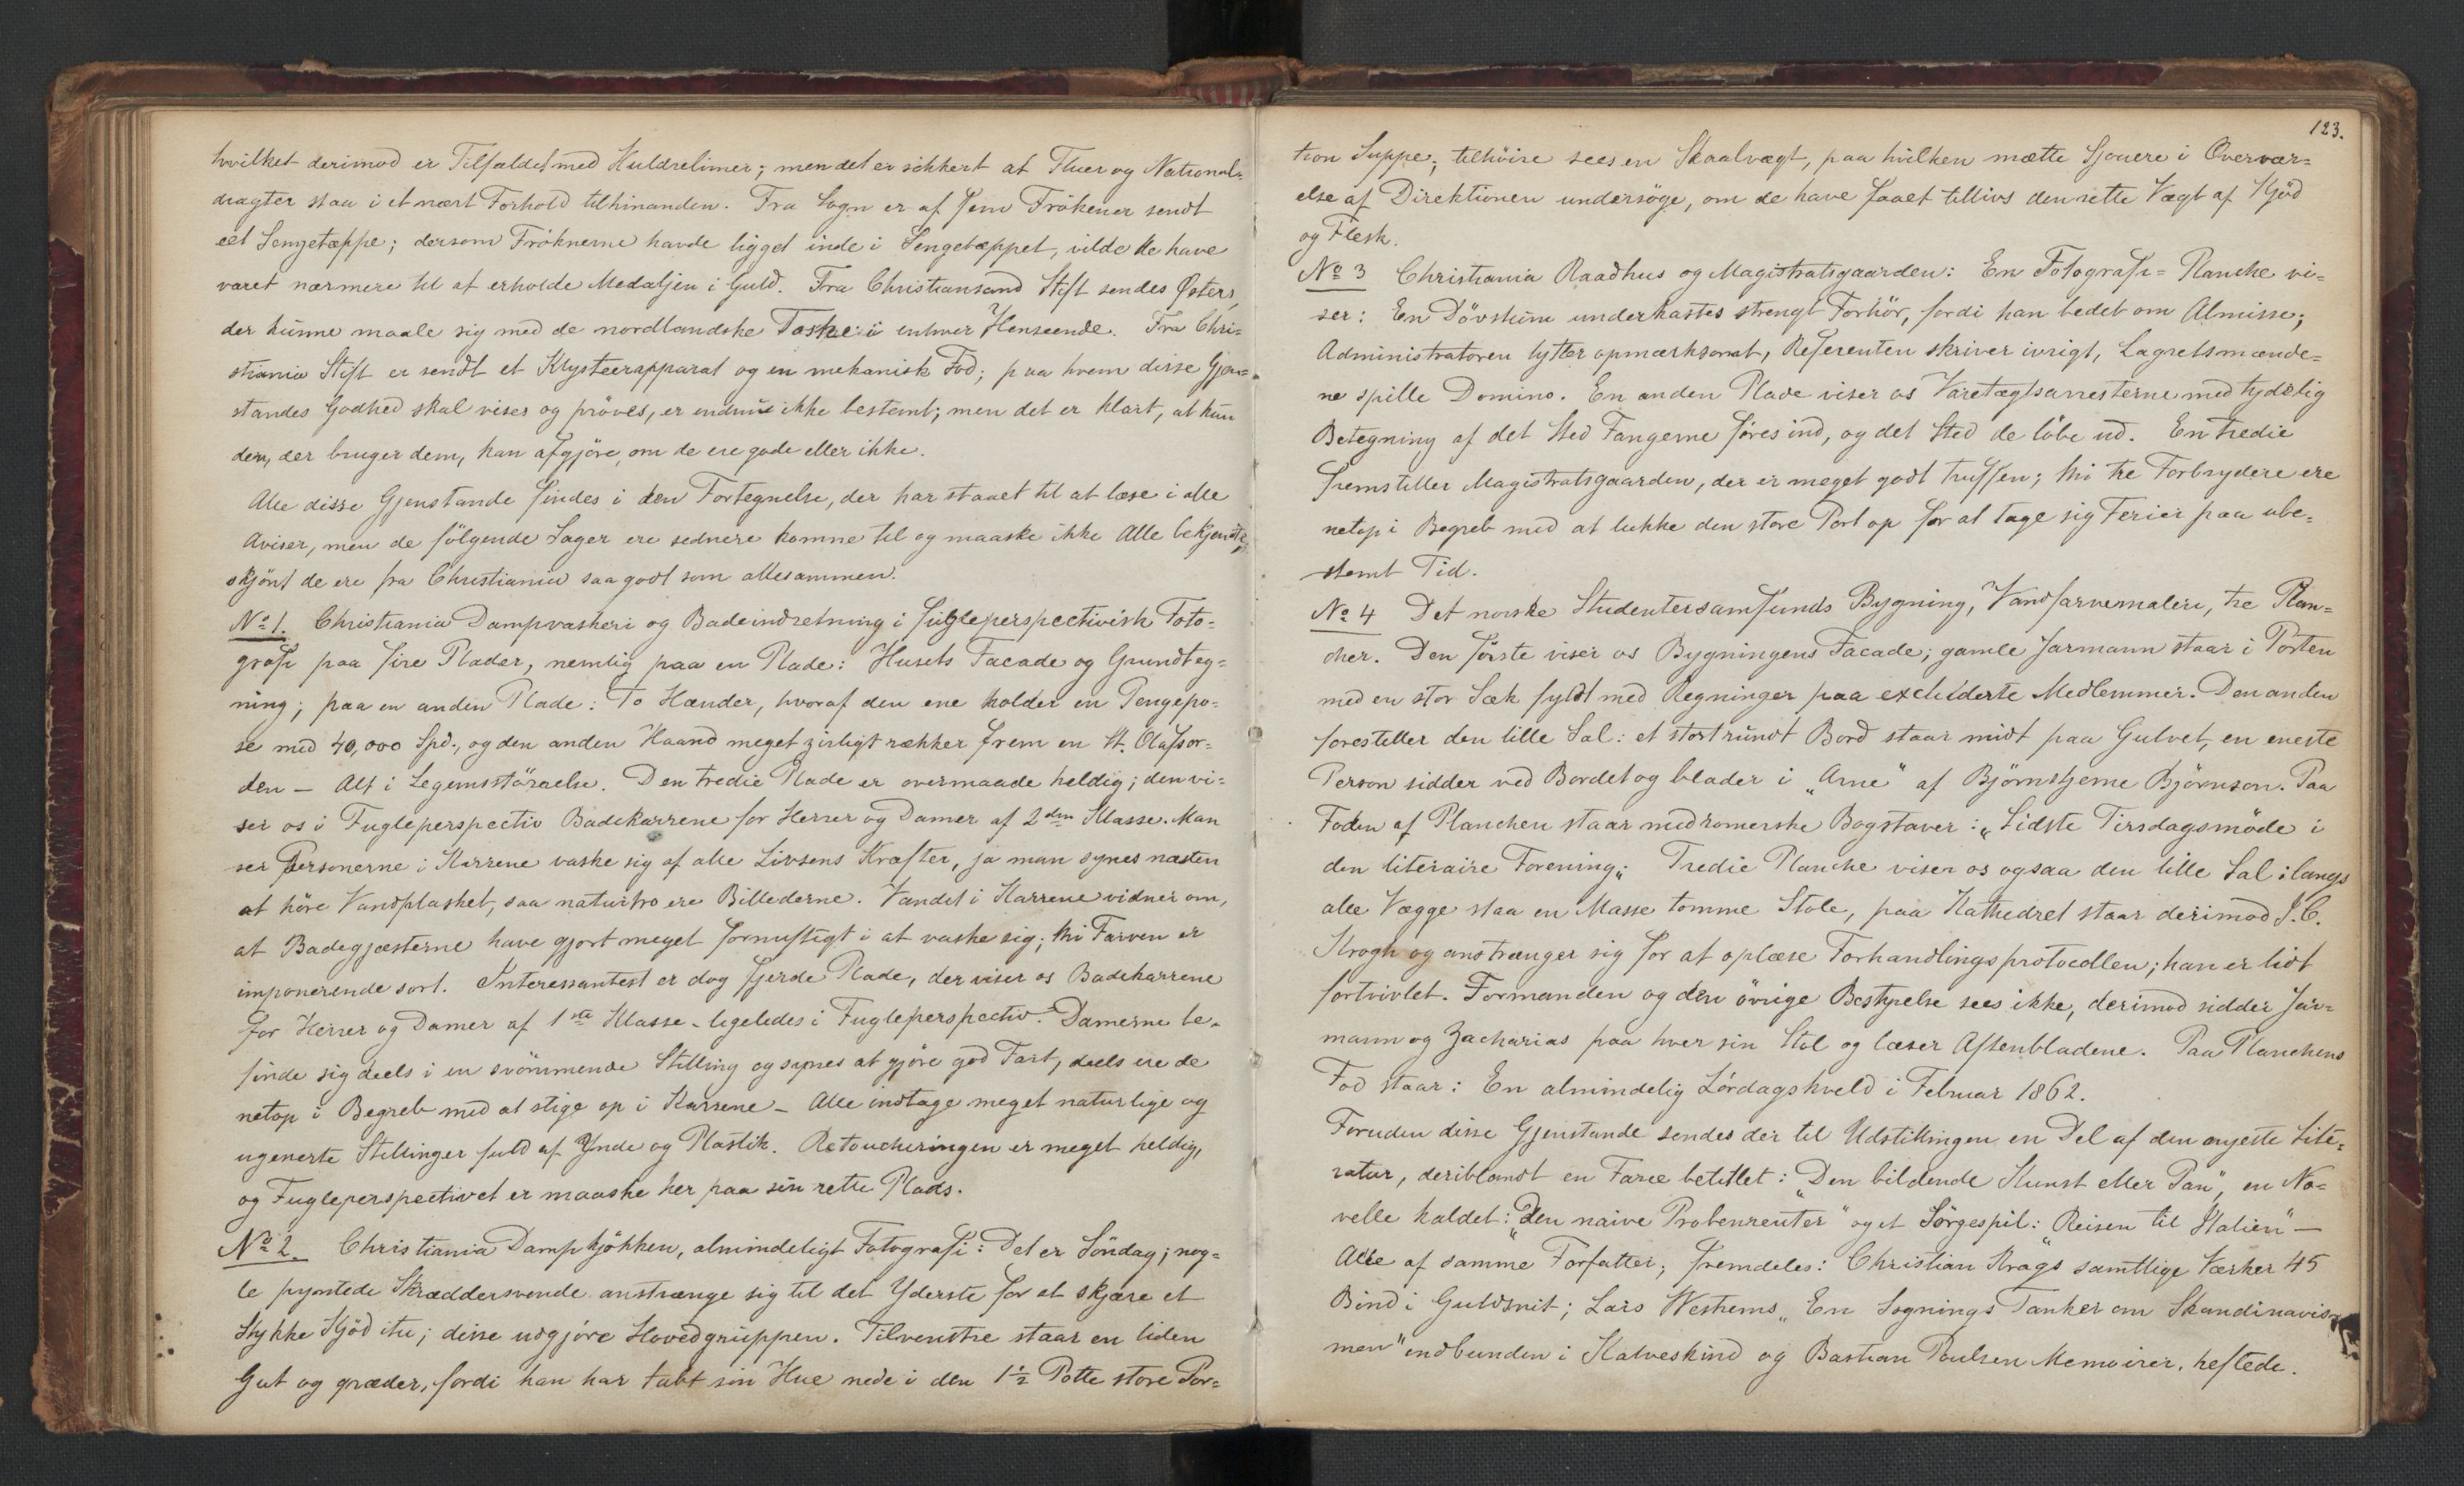 hvilket derimod er Tilfældet med Huldrelimer; men det er sikkert at Fluer og National-
dragter staa i et nært Forhold tilhinanden. Fra Sogn er af fem Frökener sendt
eet Sengetæppe; dersom Fröknerne havde ligget inde i Sengetæppet, vilde de have
været nærmere til at erholde Medaljen i Guld. Fra Christiansand Stift sendes Östers,
der kunne maale sig med de nordlandske Toske i enhver Henseende. Fra Chri-
stiania Stift er sendt et Klysteerapparat og en mekanisk Fod; paa hvem disse Gjen-
standes Godhed skal vises og pröves, er endnu ikke bestemt; men det er klart, at kun
den, der bruger dem, kan afgjöre, om de ere gode eller ikke.
Alle disse Gjenstande findes i den Fortegnelse, der har staaet til at læse i alle
Aviser, men de fölgende Sager ere sednere komne til og maaske ikke Alle bekjendte,
skjönt de ere fra Christiania saa godt som allesammen.
No 1. Christiania Dampvaskeri og Badeindretning i fugleperspectivisk Foto-
grafi paa fire Plader, nemlig paa en Plade: Husets Facade og Grundteg-
ning; paa en anden Plade: To Hænder, hvoraf den ene holder en Pengepo-
se med 40,000 Spd., og den anden Haand meget zirligt rækker frem en St. Olafsor-
den – Alt i Legemsstörrelse. Den tredie Plade er overmaade heldig; den vi-
ser os i Fugleperspectiv Badekarrene for Herrer og Damer af 2den Klasse. Man
ser Personerne i Karrene vaske sig af alle Livsens Kræfter, ja man synes næsten
at höre Vandplasket, saa naturtro ere Billederne. Vandet i Karrene vidner om,
at Badegjæsterne have gjort meget fornuftigt i at vaske sig; thi Farven er
imponerende sort. Interessantest er dog fjerde Plade, der viser os Badekarrene
for Herrer og Damer af 1ste Klasse – ligeledes i Fugleperspectiv. Damerne be-
finde sig deels i en svömmende Stilling og synes at gjöre god Fart, deels ere de
netop i Begreb med at stige op i Karrene – Alle indtage meget naturlige og
ugenerte Stillinger fuld af Ynde og Plastik. Retoucheringen er meget heldig,
og Fugleperspectivet er maaske her paa sin rette Plads.
No 2. Christiania Dampkjökken, almindeligt Fotografi: Det er Söndag; nog-
le pyntede Skræddersvende anstrænge sig til det Yderste for at skjære et
Stykke Kjöd itu; disse udgjöre Hovedgruppen. Tilvenstre staar en liden
Gut og græder, fordi han har tabt sin Hue nede i den 1½ Potte store Por-
123.
tion Suppe; tilhöire sees en Skaalvægt, paa hvilken mætte Sjouere i Overvær-
else af Direktionen undersöge, om de have faaet tillivs den rette Vægt af Kjöd
og Flesk.
No 3 Christiania Raadhus og Magistratsgaarden: En Fotografi-Planche vi-
ser: En Dövstum underkastes strengt Forhör, fordi han bedet om Almisse;
Administratoren lytter opmærksomt, Referenten skriver ivrigt, Lagretsmænde-
ne spille Domino. En anden Plade viser os Varetægtsarresterne med tydelig
Betegning af det Sted Fangerne föres ind, og det Sted de löbe ud. En tredie
fremstiller Magistratsgaarden, der er meget godt truffen; thi tre Forbrydere ere
netop i Begreb med at lukke den store Port op for at tage sig Ferier paa ube-
stemt Tid.
No 4 Det norske Studentersamfunds Bygning, Vandfarvemaleri, tre Plan-
cher. Den förste viser os Bygningens Facade; gamle Jarmann staar i Porten
med en stor Sæk fyldt med Regninger paa excluderte Medlemmer. Den anden
forestiller den lille Sal: et stort rundt Bord staar midt paa Gulvet, en eneste
Person sidder ved Bordet og blader i „Arne“ af Björnstjerne Björnson. Paa
Foden af Planchen staar med romerske Bogstaver: „Sidste Tirsdagsmöde i
den literaire Forening„ Tredie Planche viser os ogsaa den lille Sal: langs
alle Vægge staa en Masse tomme Stole, paa Kathedret staar derimod J. C.
Krogh og anstrænger sig for at oplæse Forhandlingsprotocollen; han er lidt
fortvivlet. Formanden og den övrige Bestyrelse sees ikke, derimod sidder Jar-
mann og Zacharias paa hver sin Stol og læser Aftenbladene. Paa Planchens
Fod staar: En almindelig Lördagskveld i Februar 1862.
Foruden disse Gjenstande sendes der til Udstillingen en Del af den nyeste Lite-
ratur, deriblandt en Farce betitlet: „Den bildende Kunst eller Pan“, en No-
velle kaldet: „Den naive Probenreuter“ og et Sörgespil: „Reisen til Italien“ –
Alle af samme Forfatter; fremdeles: Christian Krags samtlige Værker 45
Bind i Guldsnit; Lars Westrems „En Sognings Tanker om Skandinavis-
men“ indbunden i Kalveskind og Bastian Poulsen Memoirer, heftede.